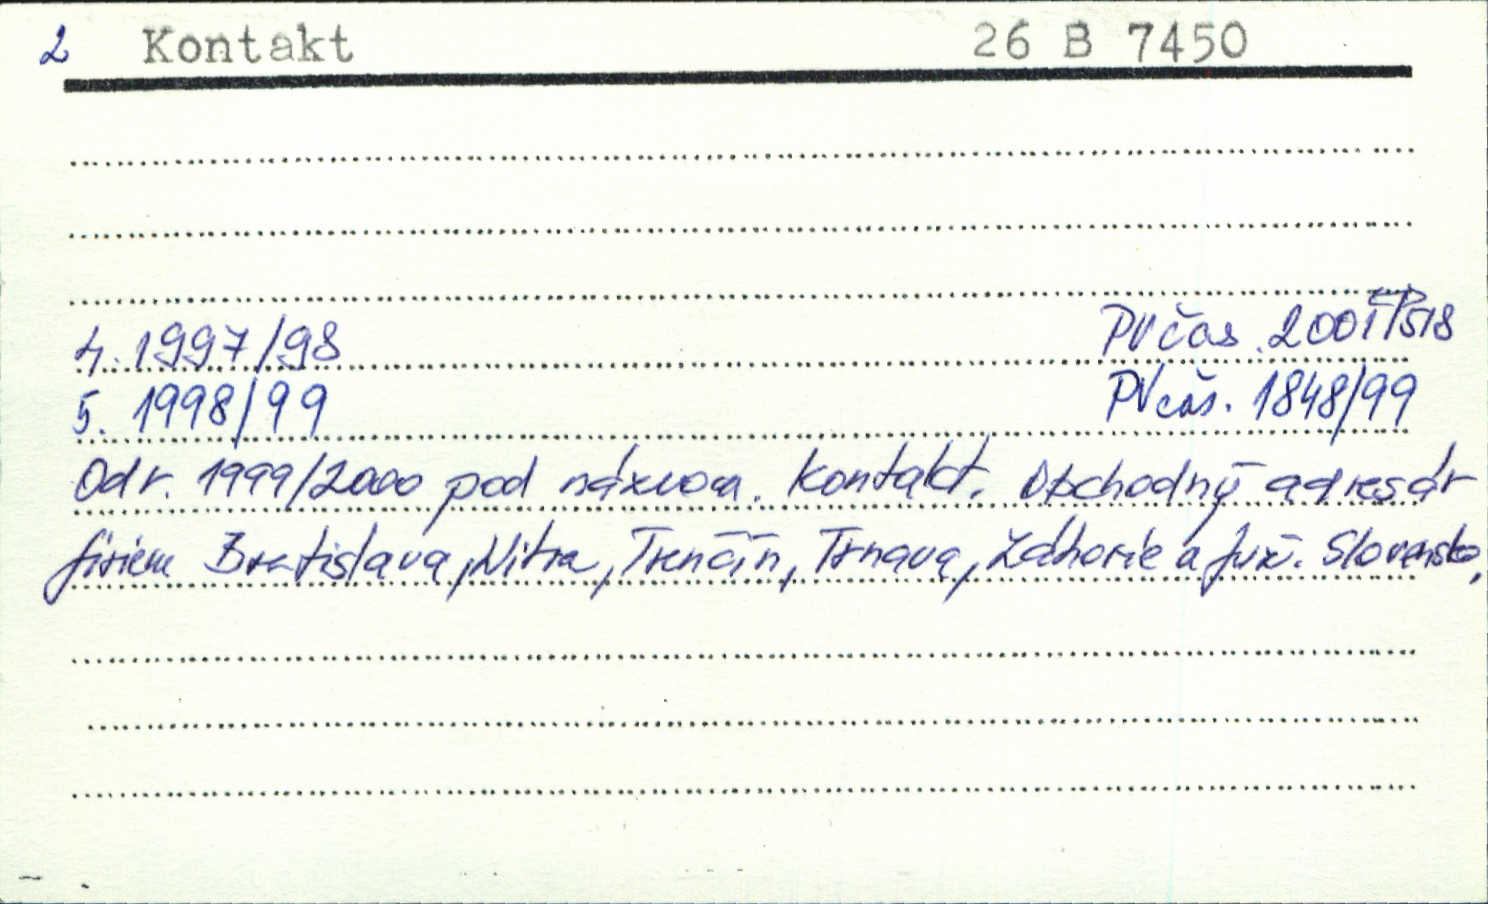 2 Kontakt 26 B 7450
4. 1997/98 PV čas. 2001
5. 1998/99 PV čas. 1848/99
Od r. 1999/2000 pod názvom. Kontakt. Obchodný adresár
firiem Bratislava, Nitra, Trenčín, Trnava, Záhorie a Juž. Slovensko,